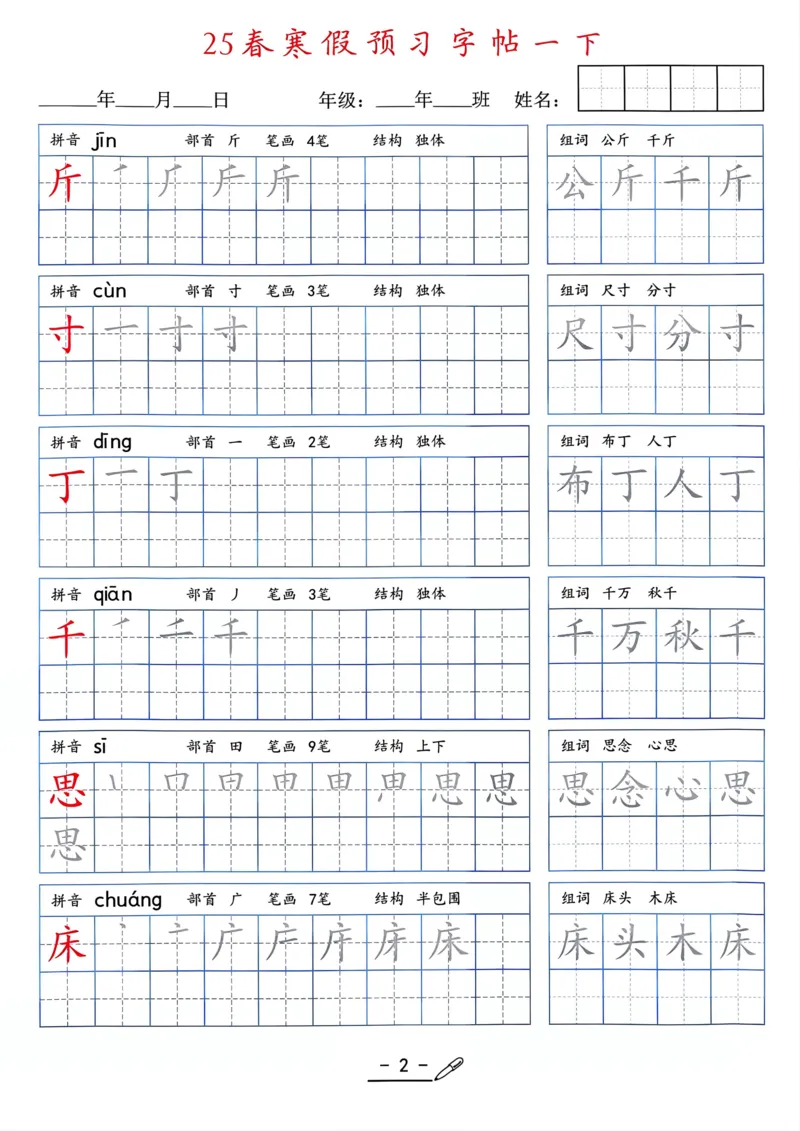 25春寒假预习字帖一下
年 月 日 年级： 年 班 姓名：
拼音 jīn 部首 斤 笔画 4笔 结构 独体 组词 公斤 千斤
斤 斤 公斤千斤
拼音 cùn 部首 寸 笔画 3笔 结构 独体 组词 尺寸 分寸
寸 一 寸 寸 尺寸分寸
拼音 dīng 部首 一 笔画 2笔 结构 独体 组词 布丁 人丁
丁 一 丁 布丁人丁
拼音 qiān 部首 丿 笔画 3笔 结构 独体 组词 千万 秋千
千 千 千万秋千
拼音 sī 部首 田 笔画 9笔 结构 上下 组词 思念 心思
思 思念心思
思
拼音 chuáng 部首 广 笔画 7笔 结构 半包围 组词 床头 木床
床 广 床 床头木床
- 2 -